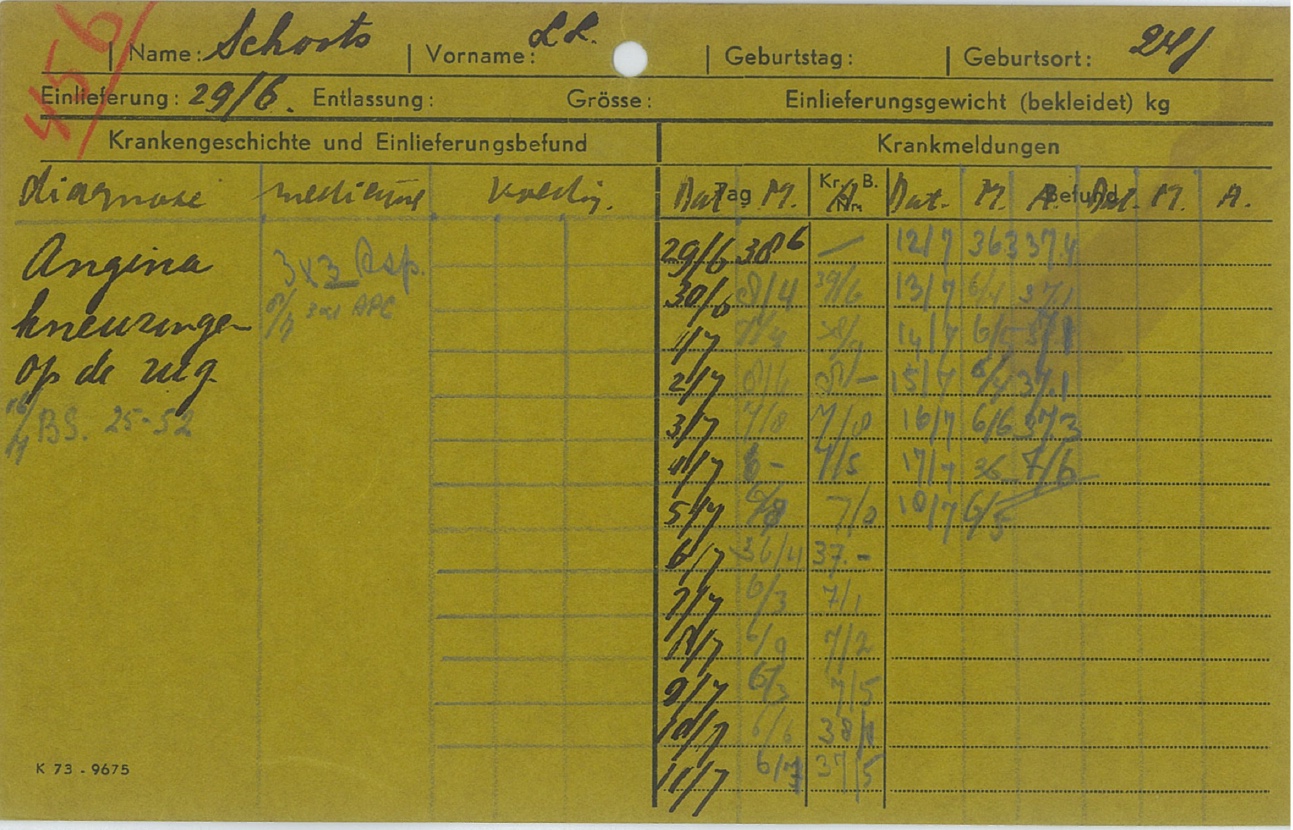 456
Name: Schorts Vorname: Geburtstag: Geburtsort: 24/
Einlieferung: 29/6. Entlassung: Grösse: Einlieferungsgewicht (bekleidet) kg
Krankengeschichte und Einlieferungsbefund Krankmeldungen
diagnose medicijne voeding. Tag Kr. B. Nr. Befund
Dat M. A. Dat. M. A. Dat. M. A.
Angina 3x3 Asp. 29/6 38⁶ — 12/7 36 3 37.4
30/6 8/4 39/6 13/7 6/4 37.1
kneuzingen 8/7 3x1 APC 1/7 14/7 6/5
op de rug 2/7 15/7 37.1
3/7 7/8 7/8 16/7 6/6 37.3
16/7 BS. 25-52 4/7 6- 7/5 17/7 36 7/6
5/7 18/7 6/5
6/7 36/4 37.-
7/7 6/3 7/1
8/7 6/9 7/2
9/7 6/3 7/5
10/7 6/6
11/7 37/5
K 73 - 9675